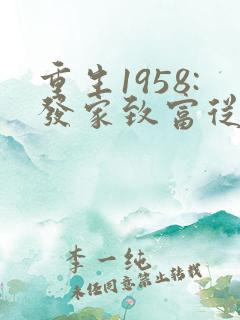 重生1958:
發家致富從
李一純
未经同意禁止转载